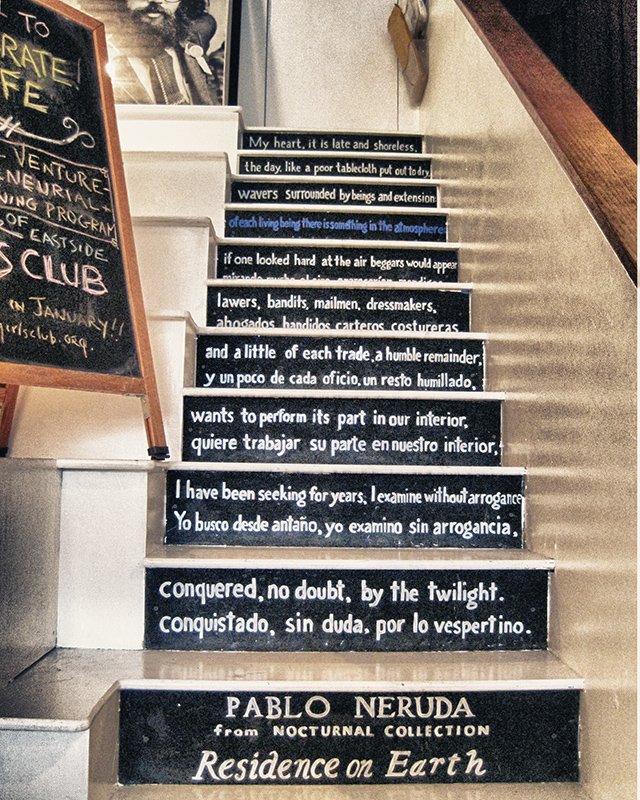 TO
RATE!
FE
VENTURE-
NEURIAL+
NING PROGRAM
OF EASTSIDE
S CLUB
IN JANUARY!!
girlsclub.org.
My heart, it is late and shoreless,
the day, like a poor tablecloth put out to dry,
wavers surrounded by beings and extension:
of each living being there is something in the atmosphere:
if one looked hard at the air beggars would appear
lawers, bandits, mailmen, dressmakers,
abogados, bandidos carteros, costureras
and a little of each trade, a humble remainder,
y un poco de cada oficio, un resto humillado,
wants to perform its part in our interior,
quiere trabajar su parte en nuestro interior,
I have been seeking for years, I examine without arrogance
Yo busco desde antaño, yo examino sin arrogancia,
conquered, no doubt, by the twilight.
conquistado, sin duda, por lo vespertino.
PABLO NERUDA
from NOCTURNAL COLLECTION
Residence on Earth